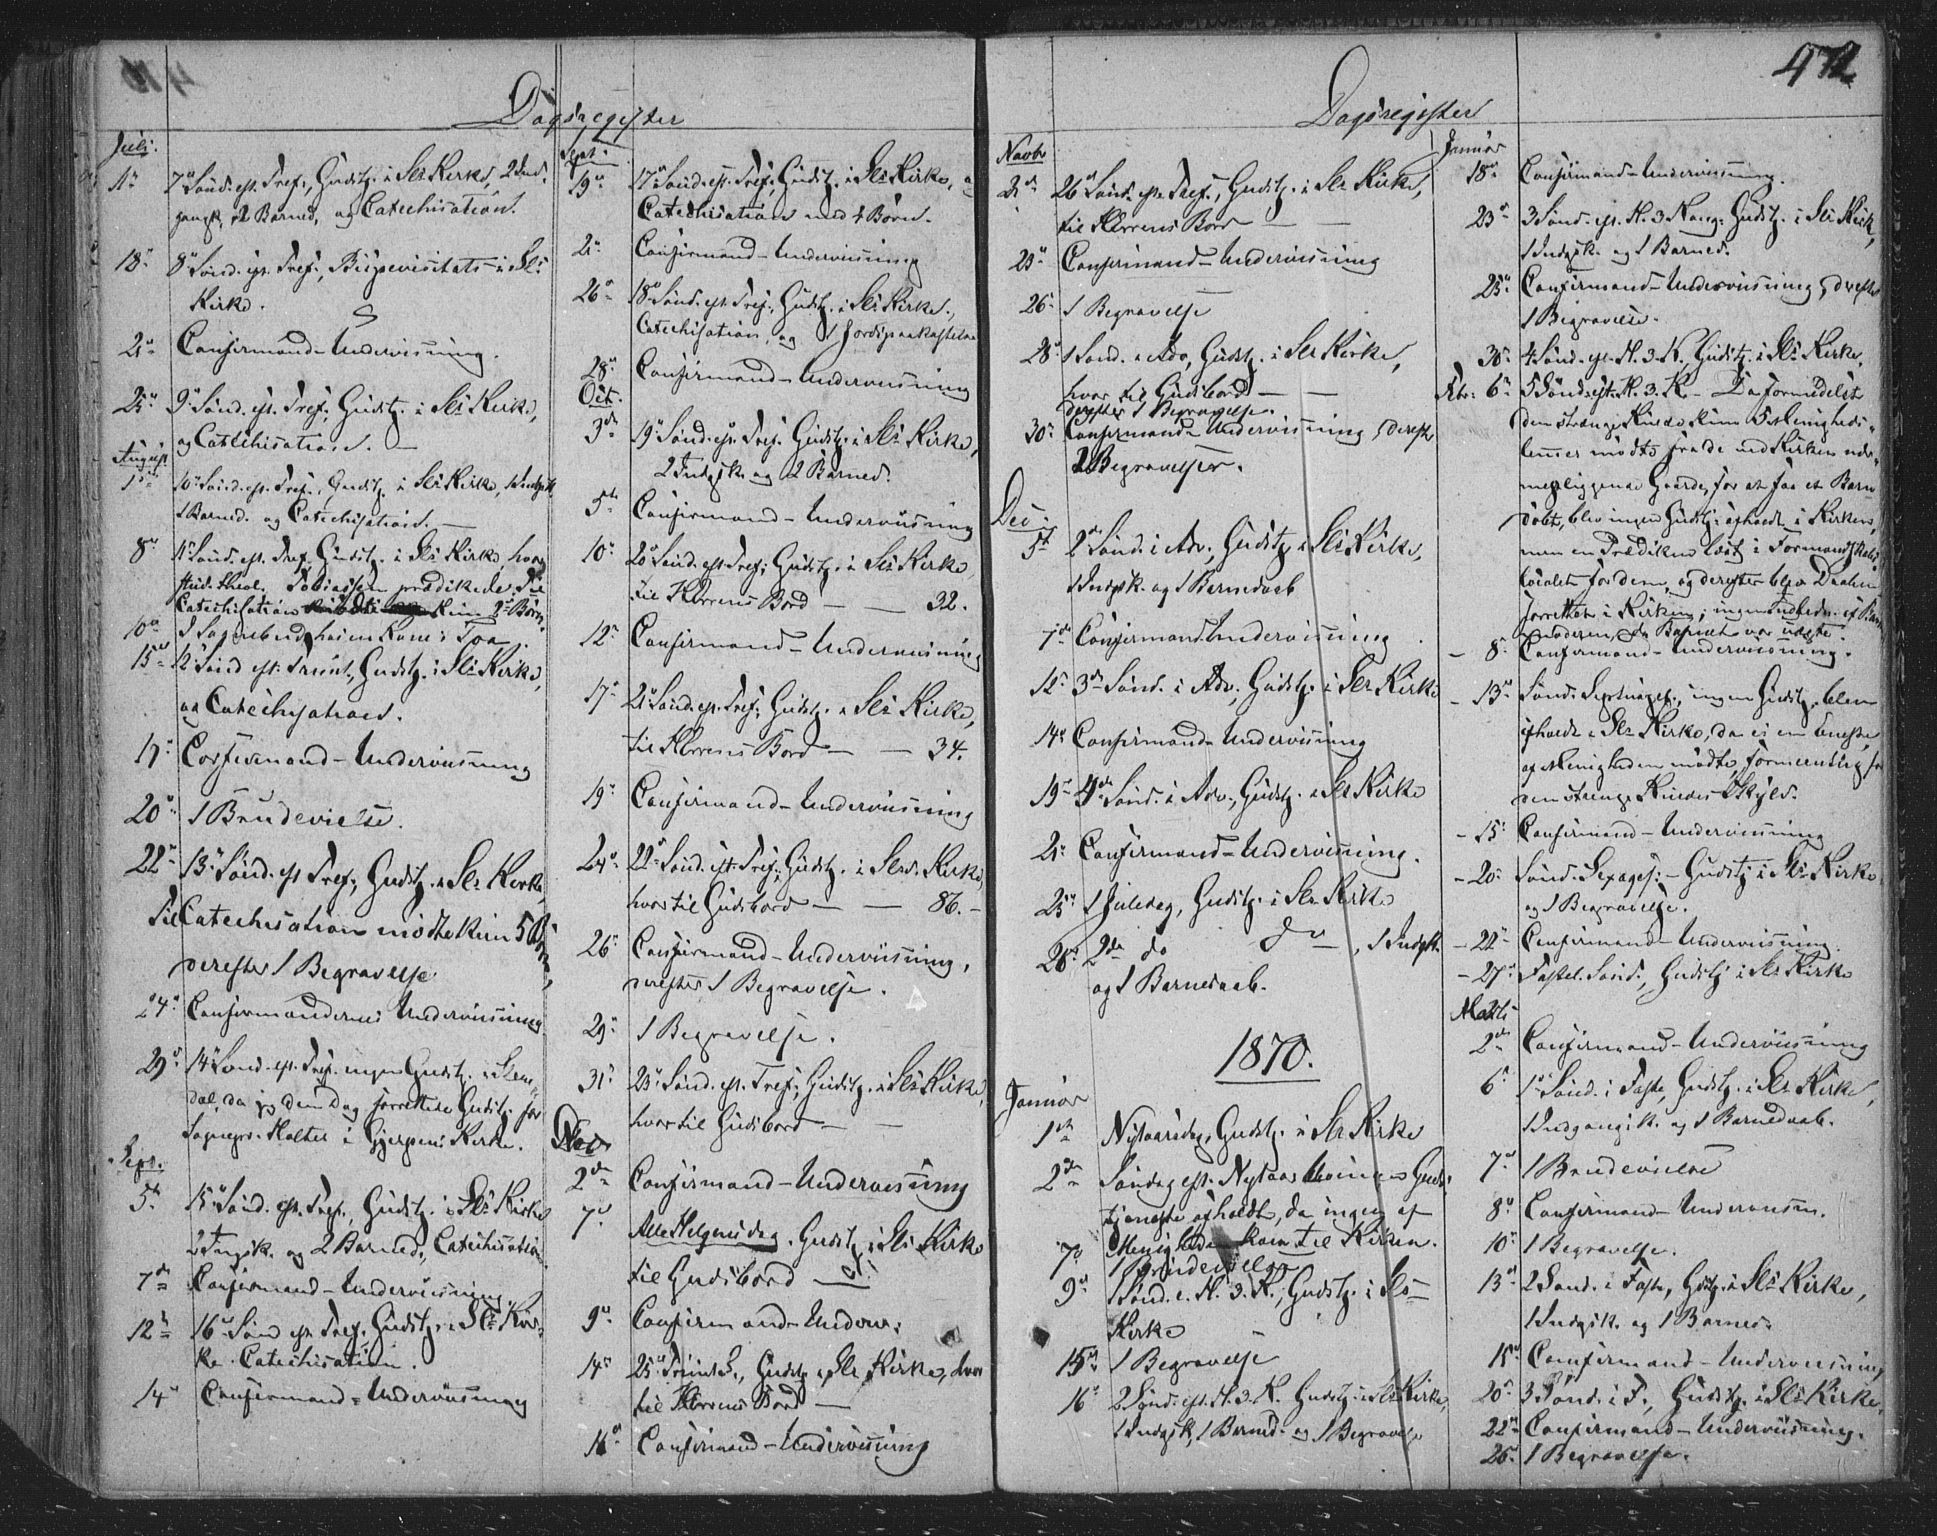 Dagsregister
Juli.
11te 7de Sönd. eft. Tref., Gudstj. i Sls Kirke, 2 Ind-
gangsk., 2 Barned. og Catechisation.
18de 8de Sönd. ef. Tref., Bispevisitats i Sls
Kirke.
21de Confirmand-Underviisning.
25de 9de Sönd. ef. Tref., Gudstj. i Sls Kirke,
og Catechisation.
August
1ste 10de Sönd. ef. Tref., Gudstj. i Sls Kirke, 1 Indgsk.
1 Barned. og Catechisation.
8de 11te Sönd. ef. Tref. Gudstj. i Sls Kirke, hvor
stud. theol. Tobiassen prædikede. Til
Catechisation kun 2 Börn.
10de I Sognebud
15de 12te Sönd. eft. Trinit., Gudstj. i Sls Kirke,
og Catechisation.
17de Confirmand-Underviisning
20de 1 Brudevielse.
22de 13de Sönd. ef. Tref., Gudstj. i Sls Kirke,
Til Catechisation mödte kun 5 Börn,
derefter 1 Begravelse
24de Confirmandernes Underviisning.
29de 14de Sönd. ef. Tref. ingen Gudstj. i Slem-
dal, da jeg den Dag forrettede Gudstj. for
Sognepr. Halter i Gjerpens Kirke.
Sept.
5te 15de Sönd. ef. Tref., Gudstj. i Sls Kirke
2 Indgsk. og 2 Barned., Catechisation
7de Confirmand-Underviisning.
12te 16de Sönd. ef. Tref. Gudstj. i Sls Kir-
ke. Catechisation.
14de Confirmand-Underviisning
Sept.
19de 17de Sönd. ef. Tref., Gudstj. i Sls Kirke, og
Catechisation med 4 Börn.
21de Confirmand-Underviisning
26de 18de Sönd. ef. Tref., Gudstj. i Sls Kirke,
Catechisation, og 1 Jordspaakastelse
28de Confirmand-Underviisning
Oct.
3die 19de Sönd. ef. Tref. Gudstj. i Sls Kirke,
2 Indgsk. og 2 Barned.
5te Confirmand-Underviisning
10de 20de Sönd. ef. Tref., Gudstj. i Sls Kirke
til Herrens Bord — — 32.
12te Confirmand-Underviisning
17de 21de Sönd. ef. Tref., Gudstj. i Sls Kirke,
til Herrens Bord — — 34.
19de Confirmand-Underviisning
24de 22de Sönd. eft. Tref., Gudstj. i Slesd. Kirke,
hvor til Gudsbord — — 86.-
26de Confirmand-Underviisning,
derefter 1 Begravelse.
29de 1 Begravelse.
31te 23de Sönd. ef. Tref., Gudstj. i Sls Kirke,
hvor til Gudsbord — —
Nov
2den Confirmand-Underviisning
7de Alle Helgensdag. Gudstj. i Sls Kirke
til Gudsbord —
9de Confirmand-Underv:
14de 25de Trinit. S., Gudstj. i Sls Kirke, hvor
til Herrens Bord —
16de Confirmand-Underviisning
472
Dagsregister
Novbr
21de 26de Sönd. ef. Tref., Gudstj. i Sls Kirke,
til Herrens Bord — —
23de Confirmand-Underviisning
26de 1 Begravelse
28de 1 Sönd. i Adv., Gudstj. i Sls Kirke,
hvor til Gudsbord — —
derefter 1 Begravelse.
30te Confirmand-Underviisning, dereft.
2 Begravelser.
Dec.
5te 2den Sönd. i Adv., Gudstj. i Sls Kirke,
1 Indgsk. og 1 Barnedaab
7de Confirmand Underviisning
12te 3die Sönd. i Adv., Gudstj. i Sls Kirke
14de Confirmand-Underviisning
19de 4de Sönd. i Adv., Gudstj. i Sls Kirke
21de Confirmand-Underviisning.
25de 1 Juledag, Gudstj. i Sls Kirke
26de 2den do do —, 1 Indgsk.
og 1 Barnedaab.
1870.
Januar
1ste Nytaarsdag, Gudstj. i Sls Kirke
2den Söndag ef. Nytaar ingen Guds-
tjeneste afholdt, da ingen af
Menigheden kom til Kirken.
7de 1 Brudevielse
9de 1 Sönd. e. H. 3. K., Gudstj. i Sls
Kirke
15de 1 Begravelse
16de 2 Sönd. ef. H. 3. K. Gudstj. i Sls Kirke,
1 Indgsk., 1 Barned. og 1 Begravelse
Januar
18de Confirmand-Underviisning.
23de 3 Sönd. ef. H. 3 Kong. Gudstj. i Sls Kirk,
1 Indgsk. og 1 Barned.
25de Confirmand-Underviisning, derefter
1 Begravelse.
30te 4 Sönd. ef. H. 3. K., Gudstj. i Sls Kirke.
Febr: 6te 5 Sönd. eft. H. 3. K. - Da formedelst
den strenge Kulde kun 5 Menigheds-
lemmer mödte fra de ved Kirken nær-
mest liggende Gaarde, for at faa et Barn
döbt, blev ingen Gudstj. afholdt i Kirken,
men en Prædiken læst i Formandskabs-
localet for dem, og derefter blev Daaben
forrettet i Kirken; ingen Indledn. af Barse-
moderen, da Barnet var uægte.
- 8de Confirmand-Underviisning.
- 13de Sönd. Septuages., ingen Gudstj. blev
afholdt i Sls Kirke, da ei en eneste
af Menigheden mödte, formeentlig for
den strenge Kuldes Skyld.
- 15de Confirmand-Underviisning
- 20de Sönd. Sexages: - Gudstj. i Sls Kirke
og 1 Begravelse.
- 22de Confirmand-Underviisning.
- 27de Fastel. Sönd., Gudstj. i Sls Kirke
Marts
2den Confirmand-Underviisning
6te 1ste Sönd. i Faste, Gudstj. i Sls Kirke,
1 Indgangsk. og 1 Barnedaab.
7de 1 Brudevielse
8de Confirmand-Underviisn.
10de 1 Begravelse.
13de 2 Sönd. i Faste, Gdstj. i Sls Kirke,
1 Indgsk. og 1 Barned.
15de Confirmand-Underviisning,
20de 3 Sönd. i F., Gudstj. i Sls Kirke,
22de Confirmand-Underviisning.
26de 1 Begravelse.